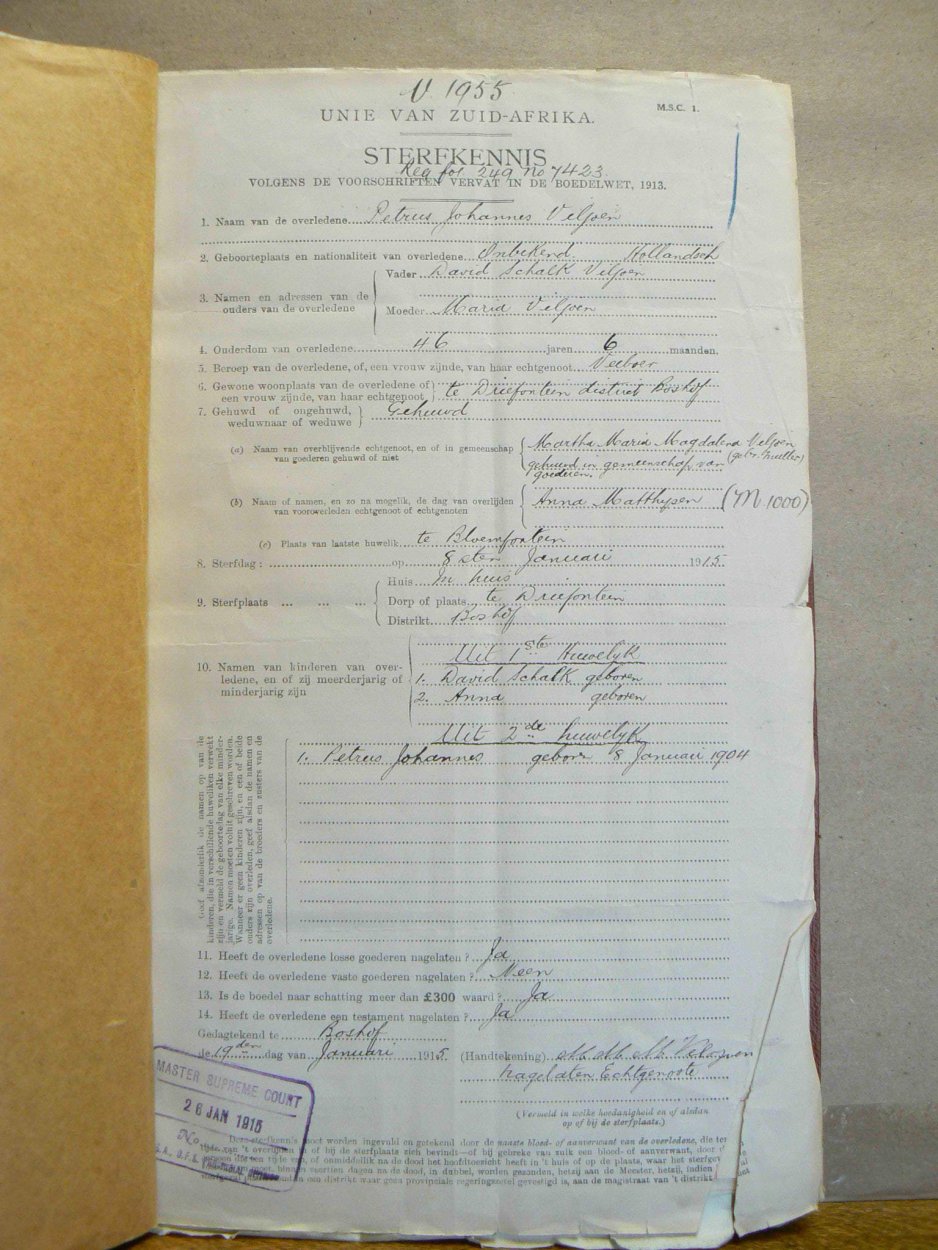 V. 1955
UNIE VAN ZUID-AFRIKA.
M.S.C. 1.
STERFKENNIS
Reg fol 249 No 7423.
VOLGENS DE VOORSCHRIFTEN VERVAT IN DE BOEDELWET, 1913.
1. Naam van de overledene Petrus Johannes Viljoen
2. Geboorteplaats en nationaliteit van overledene Onbekend Hollandsch
3. Namen en adressen van de ouders van de overledene
Vader David Schalk Viljoen
Moeder Maria Viljoen
4. Ouderdom van overledene 46 jaren 6 maanden.
5. Beroep van de overledene, of, een vrouw zijnde, van haar echtgenoot Veeboer
6. Gewone woonplaats van de overledene of
een vrouw zijnde, van haar echtgenoot te Driefontein district Boshof
7. Gehuwd of ongehuwd, weduwnaar of weduwe Gehuwd
(a) Naam van overblijvende echtgenoot, en of in gemeenschap
van goederen gehuwd of niet
Martha Maria Magdalena Viljoen
(gebr. Muller)
gehuwd in gemeenschap van
goederen.
(b) Naam of namen, en zo na mogelik, de dag van overlijden
van vooroverleden echtgenoot of echtgenoten
Anna Matthysen (M 1000)
(c) Plaats van laatste huwelik te Bloemfontein
8. Sterfdag: op 8sten Januari 1915.
9. Sterfplaats ... ... ...
Huis In huis
Dorp of plaats te Driefontein
Distrikt Boshof
10. Namen van kinderen van overledene, en of zij meerderjarig of minderjarig zijn
Uit 1ste Huwelyk
1. David Schalk geboren
2. Anna geboren
Uit 2de huwelyk
1. Petrus Johannes geboren 8 Januari 1904
Geef afzonderlik de namen op van de
kinderen, die in verschillende huweliken verwekt
zijn en vermeld de geboortedag van elke minder-
jarige. Namen moeten voluit geschreven worden.
Wanneer er geen kinderen zijn, en een of beide
ouders zijn overleden, geef alsdan de namen en
adressen op van de broeders en zusters van de
overledene.
11. Heeft de overledene losse goederen nagelaten? Ja
12. Heeft de overledene vaste goederen nagelaten? Neen
13. Is de boedel naar schatting meer dan £300 waard? Ja
14. Heeft de overledene een testament nagelaten? Ja
Gedagtekend te Boshof
de 19den dag van Januari 1915
(Handtekening) M. M. M. Viljoen
nagelaten Echtgenoote
(Vermeld in welke hoedanigheid en of alsdan
op of bij de sterfplaats.)
MASTER SUPREME COURT
26 JAN 1915
No.
S.A., O.F.S.
Deze sterfkennis moet worden ingevuld en getekend door de naaste bloed- of aanverwant van de overledene, die ten
tijde van 't overlijden of bij de sterfplaats zich bevindt—of bij gebreke van zulk een bloed- of aanverwant, door
persoon die ten tijde van, of onmiddellik na de dood het hoofdtoezicht heeft in 't huis of op de plaats, waar het sterfgeval
moet, binnen veertien dagen na de dood, in dubbel, worden gezonden, hetzij aan de Meester, hetzij, indien
in een distrikt waar geen provinciale regeringszetel gevestigd is, aan de magistraat van 't distrikt